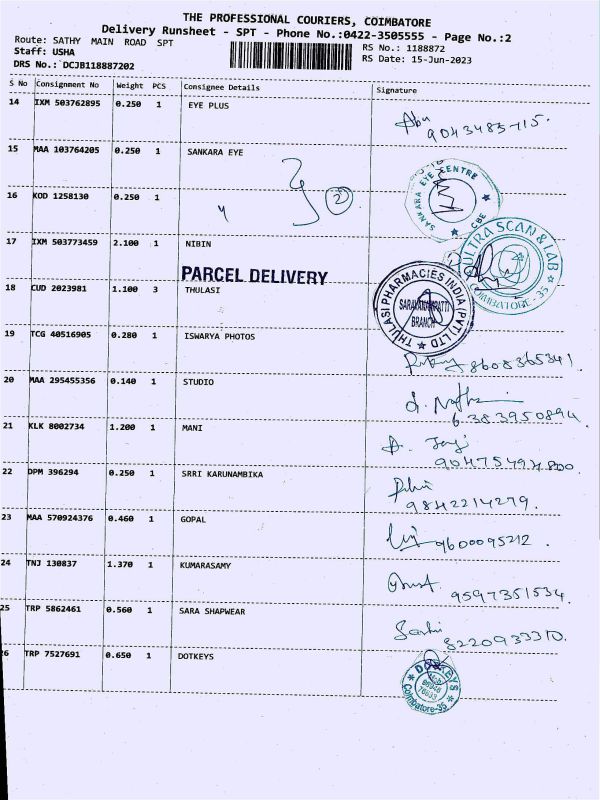 THE PROFESSIONAL COURIERS, COIMBATORE
Delivery Runsheet - SPT - Phone No.:0422-3505555 - Page No.:2
Route: SATHY MAIN ROAD SPT
RS No.: 1188872
Staff: USHA
RS Date: 15-Jun-2023
DRS No.: DCJB118887202
S No Consignment No Weight PCS Consignee Details Signature
14 IXM 503762895 0.250 1 EYE PLUS
Abu
9043485715.
15 MAA 103764205 0.250 1 SANKARA EYE
SANKARA EYE CENTRE CBE
16 KOD 1258130 0.250 1
2
ULTRA SCAN & LAB COIMBATORE - 35
17 IXM 503773459 2.100 1 NIBIN
PARCEL DELIVERY
18 CUD 2023981 1.100 3 THULASI
THULASI PHARMACIES INDIA (PVT) LTD
BRANCH
19 TCG 40516905 0.280 1 ISWARYA PHOTOS
8608365341.
20 MAA 295455356 0.140 1 STUDIO
6383950894
21 KLK 8002734 1.200 1 MANI
22 DPM 396294 0.250 1 SRRI KARUNAMBIKA
9842214279.
23 MAA 570924376 0.460 1 GOPAL
9600095212.
24 TNJ 130837 1.370 1 KUMARASAMY
9597351534.
25 TRP 5862461 0.560 1 SARA SHAPWEAR
Sashi
8220933310.
26 TRP 7527691 0.650 1 DOTKEYS
DOTKEYS
Coimbatore-35